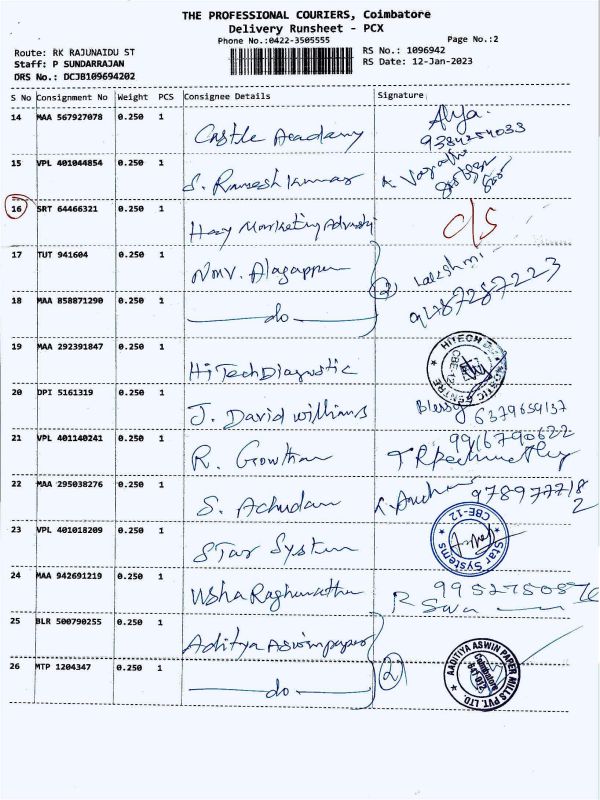 THE PROFESSIONAL COURIERS, Coimbatore
Delivery Runsheet - PCX
Phone No.:0422-3505555
Page No.:2
Route: RK RAJUNAIDU ST
RS No.: 1096942
Staff: P SUNDARRAJAN
RS Date: 12-Jan-2023
DRS No.: DCJB109694202
S No Consignment No Weight PCS Consignee Details Signature
14 MAA 567927078 0.250 1
Castle Academy
9384254033
15 VPL 401044854 0.250 1
S. Ramesh Kumar
16 SRT 64466321 0.250 1
o/s
17 TUT 941604 0.250 1
NMV. Alagappan
Lakshmi
2
18 MAA 858871290 0.250 1
do
9487287223
19 MAA 292391847 0.250 1
HiTech Diagnostic
HITECH DIAGNOSTIC CENTRE
CBE-12
20 DPI 5161319 0.250 1
J. David williams
Blessy 6379659137
21 VPL 401140241 0.250 1
9916790622
R. Gowtham
22 MAA 295038276 0.250 1
S. Achudan
9789777182
23 VPL 401018209 0.250 1
Star System
Star Systems
CBE-12
24 MAA 942691219 0.250 1
Usha Raghunathan
R
25 BLR 500790255 0.250 1
Aditya Aswin paper
2
26 MTP 1204347 0.250 1
do
AADITIYA ASWIN PAPER MILLS PVT. LTD.
Coimbatore
641 012